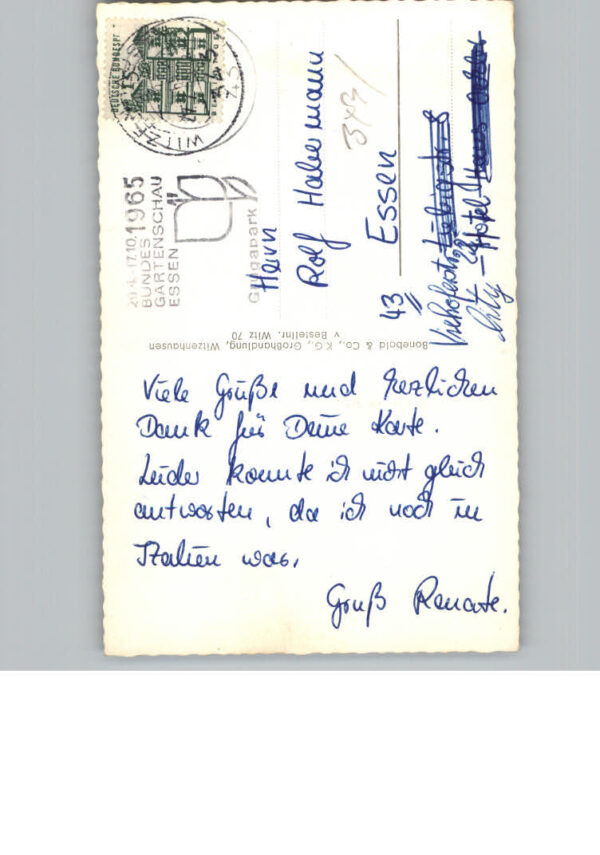 DEUTSCHE BUNDESPOST
29.4.-17.10.1965
BUNDES
GARTENSCHAU
ESSEN
Grugapark
Herrn
Rolf Habermann
343/
43 Essen
City - Hotel
Bonebold & Co., K.G., Großhandlung, Witzenhausen
v Bestellnr. Witz 70
Viele Grüße und herzlichen
Dank für Deine Karte.
Leider konnte ich nicht gleich
antworten, da ich noch in
Italien war.
Gruß Renate.